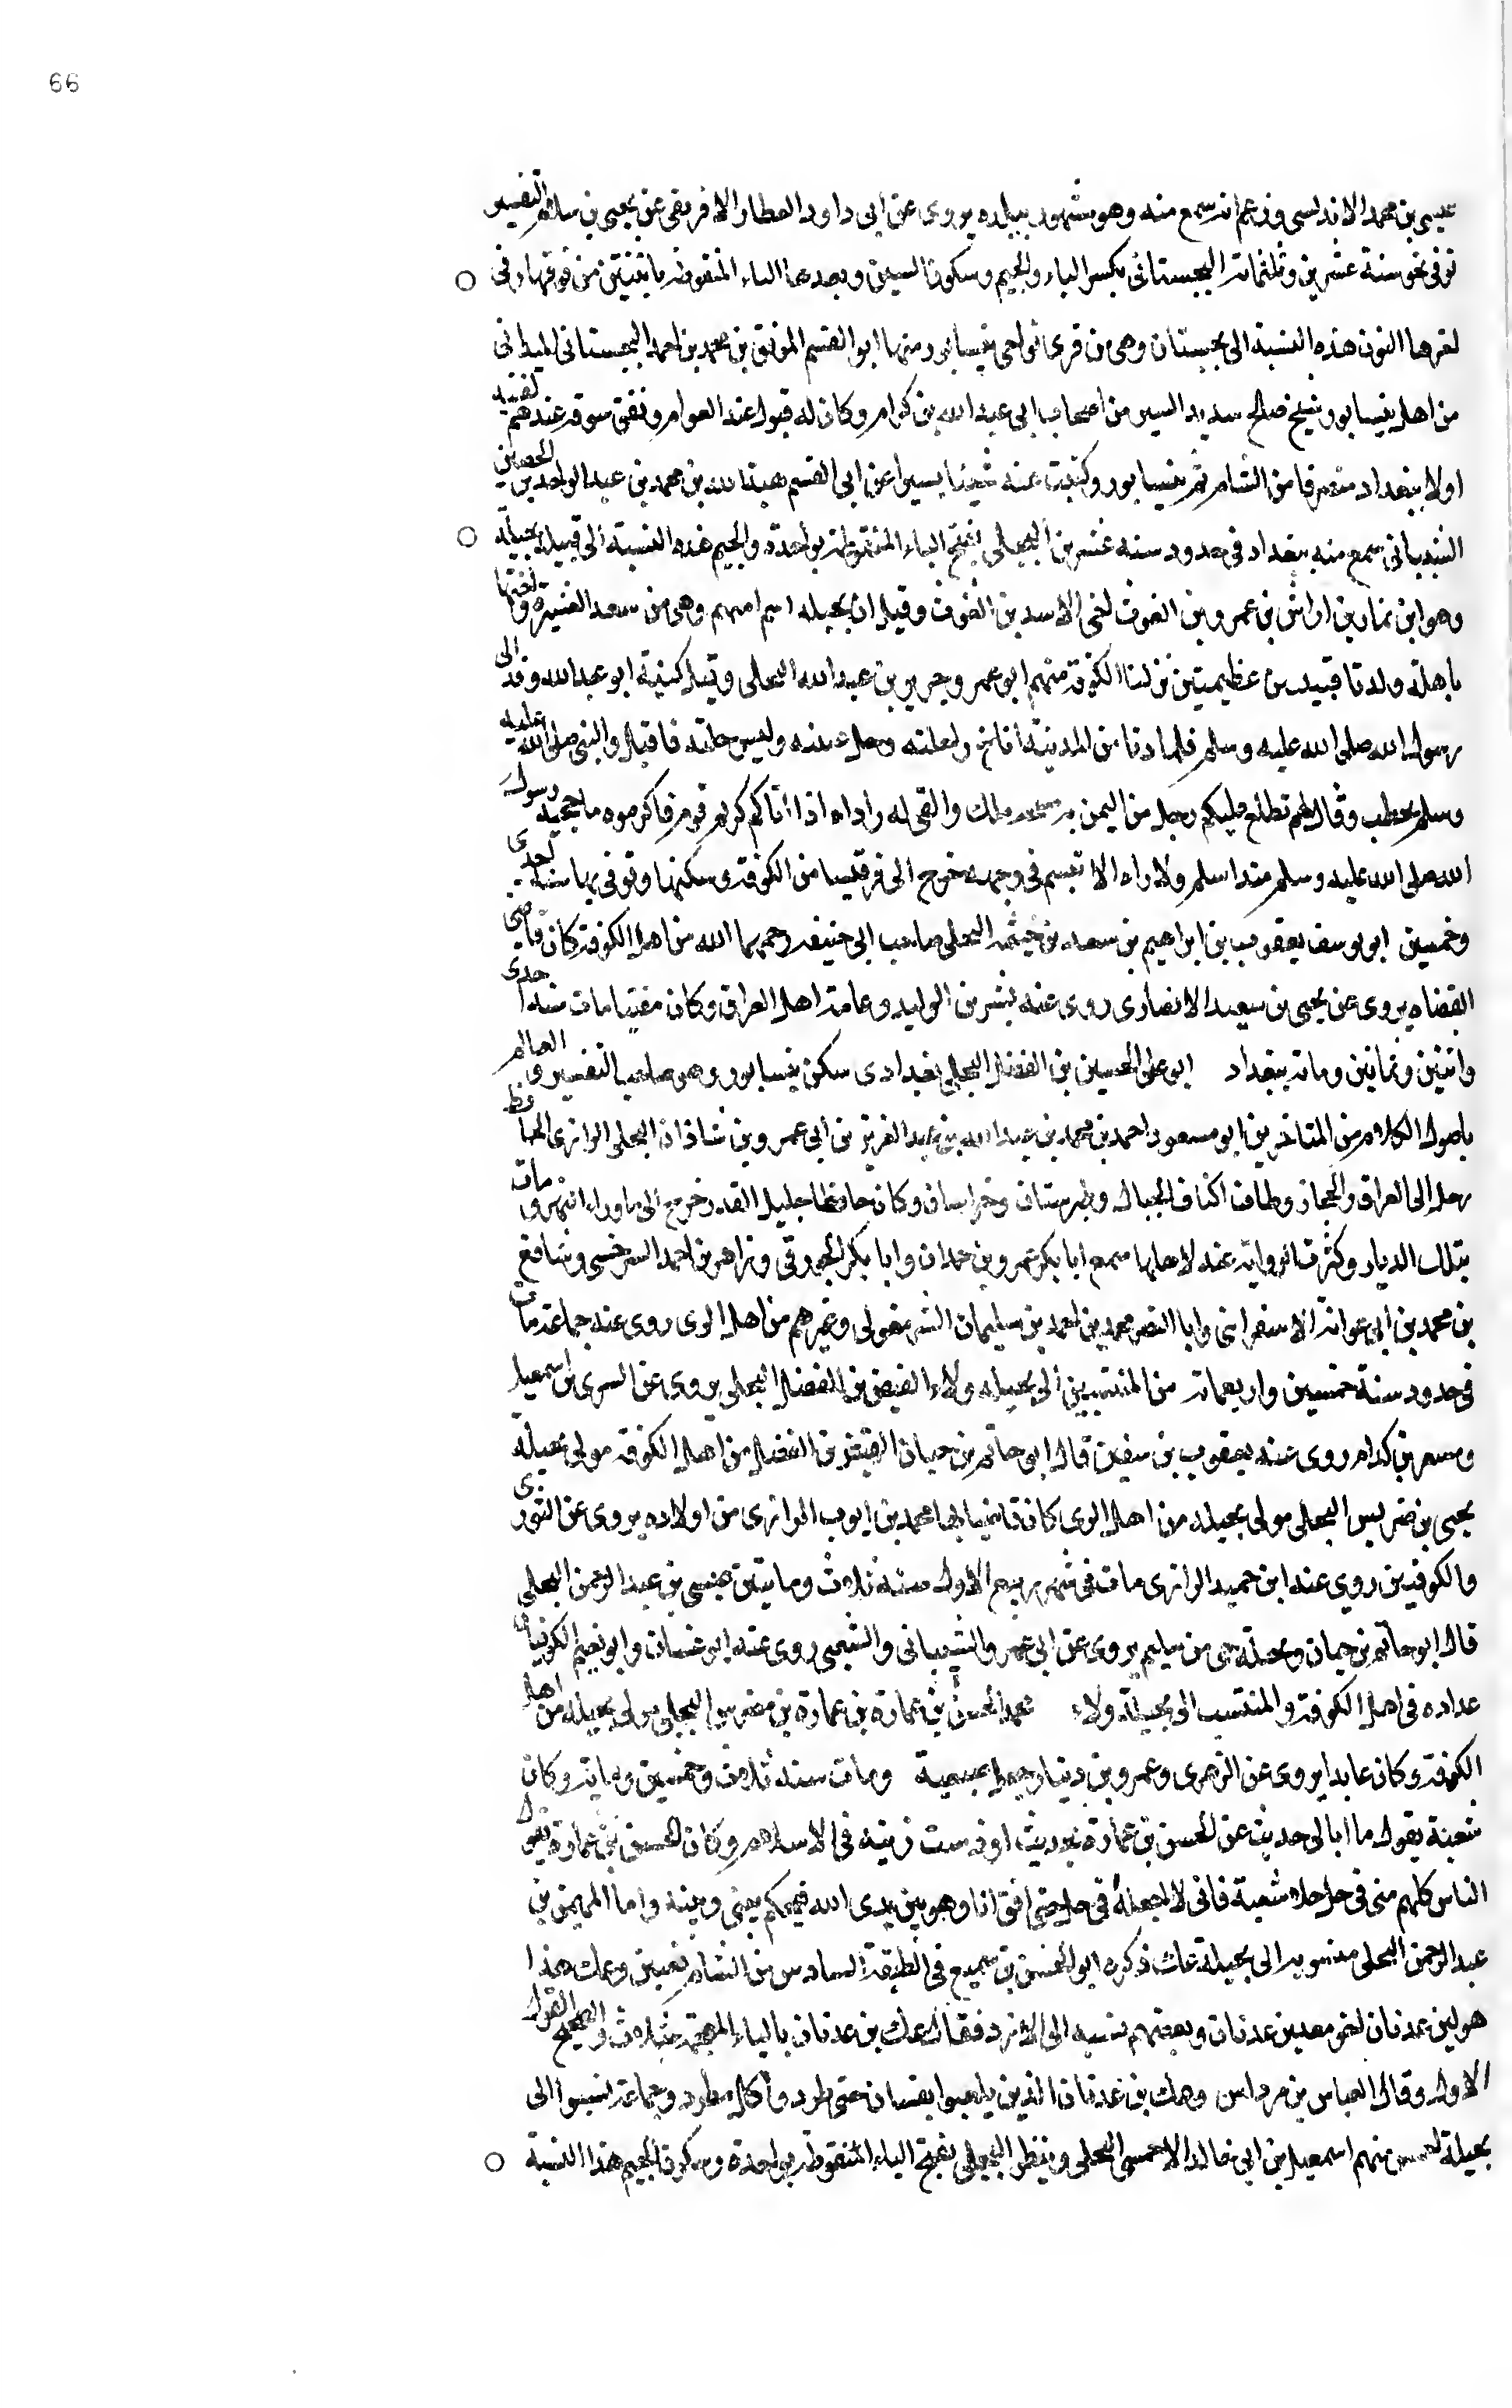 66
عيسى بن محمد الاندلسى وزعم انه سمع منه وهو مشهور ببلده يروى عن ابى داود العطار الافريقى عن يحيى بن سلام التفسير
توفى نحو سنة عشرين وثلثمائة البجستانى بكسر الباء والجيم وسكون السين وبعدها التاء المنقوطة باثنتين من فوقها وفى
اخرها النون هذه النسبة الى بجستان وهى من قرى نواحى نيسابور منها ابو القسم الموفق بن محمد بن احمد البجستانى الميدانى
من اهل نيسابور شيخ صالح سديد السير من اصحاب ابى عبد الله بن كرام وكان له قبول عند العوام ونفق سوقه عندهم لقيته
اولا ببغداد منصرفا من الشام ثم بنيسابور وكتبت عنه شيئا يسيرا عن ابى القسم هبة الله بن محمد بن عبد الواحد بن الحصين
الشيبانى سمع منه ببغداد فى حدود سنة عشرين البجلى بفتح الباء المنقوطة بواحدة والجيم هذه النسبة الى قبيلة بجيلة
وهو ابن نمار بن اراش بن عمرو بن الغوث اخى الاسد بن الغوث وقيل ان بجيله اسم امهم وهى من سعد العشيرة واختها
باهلة ولدتا قبيلتين عظيمتين نزلتا الكوفة منهم ابو عمرو جرير بن عبد الله البجلى وقيل كنيته ابو عبد الله وفد الى
رسول الله صلى الله عليه وسلم فلما دنا من المدينة اناخ راحلته وحل عيبته ولبس حلته فاقبل والنبى صلى الله عليه
وسلم يخطب وقال لهم تطلع عليكم رجل من اليمن به مسحة ملك والقى له رداه اذا اتاكم كريم قوم فاكرموه ما حجبه رسول
الله صلى الله عليه وسلم منذ اسلم ولا راه الا تبسم فى وجهه خرج الى قرقيسا من الكوفة وسكنها وتوفى بها سنة احدى
وخمسين ابو يوسف يعقوب بن ابراهيم بن سعد بن خيثمة البجلى صاحب ابى حنيفة رحمهما الله من اهل الكوفة كان قاضى
القضاه يروى عن يحيى بن سعيد الانصارى روى عنه بشر بن الوليد وعامة اهل العراق وكان مفتيا مات سنة احدى
واثنتين وثمانين ومائة ببغداد ابو على الحسين بن الفضل البجلى بغدادى سكن نيسابور وهو صاحب التفسير و العالم
باصول الكلام من المتاخرين ابو مسعود احمد بن محمد بن عبد الله بن عبد العزيز بن ابى عمرو بن شاذان البجلى الرازى الحافظ
رحل الى العراق والحجاز وطاف اكناف الجبال وطبرستان وخراسان وكان حافظا جليل القدر خرج الى ماوراء النهر ومات
بتلك الديار وكثرت الرواية عنه لاهلها سمع ابا بكر عمرو بن حمدان وابا بكر الجوزقى وزاهر بن احمد السرخسى وشافع
بن محمد بن ابى عوانة الاسفراينى وابا النضر محمد بن احمد بن سليمان الشرمغولى وغيرهم من اهل الرى روى عنه جماعة مات
فى حدود سنة خمسين واربعمائة من المنتسبين الى بجيله ولاء الفيض بن الفضل البجلى يروى عن السرى بن اسمعيل
ومسعر بن كدام روى عنه يعقوب بن سفين قال ابو حاتم بن حبان الفيض بن الفضل من اهل الكوفة مولى بجيلة
يحيى بن ضريس البجلى مولى بجيله من اهل الرى كان قاضيا بها محمد بن ايوب الرازى من اولاده يروى عن الثورى
والكوفيين روى عنه ابن حميد الرازى مات فى شهر ربيع الاول سنة ثلاث ومايتين عيسى بن عبد الرحمن البجلى
قال ابو حاتم بن حبان وبجلة حى من سليم يروى عن ابى عمرو الشيبانى والشعبى روى عنه ابو غسان وابو نعيم الكوفيان
عداده فى اهل الكوفة والمنتسب الى بجيلة ولاء محمد الحسن بن عمارة بن عمارة بن مضرب البجلى مولى بجيله من اهل
الكوفة وكان عابدا يروى عن الزهرى وعمرو بن دينار ومات سنة ثلاث وخمسين ومائة وكان
شعبة يقول ما ابالى حديث عن الحسن بن عمارة بحديث او فى الاسلام وكان الحسن بن عمارة يقول
الناس كلهم منى فى حل خلا شعبة فانى لا اجعله فى حل حتى اقف انا وهو بين يدى الله فيحكم بينى وبينه واما المهيمن بن
عبد الرحمن البجلى منسوب الى بجيلة عك ذكره ابو الحسن بن سميع فى الطبقة السادس من الشاميين وعك هذا
هو ابن عدنان اخو معد بن عدنان وبعضهم نسبه الى الازد فقال عك بن عدثان بالثاء المعجمة بثلاث والصحيح القول
الاول وقال العباس بن مرداس وعك بن عدنان الذين بغسان حتى طردوا كل مطرد وجماعة نسبوا الى
بجيلة منهم اسمعيل بن ابى خالد الاحمسى البجلى وينظر البجلى بفتح الباء المنقوطة بواحدة وسكون الجيم هذا النسبة